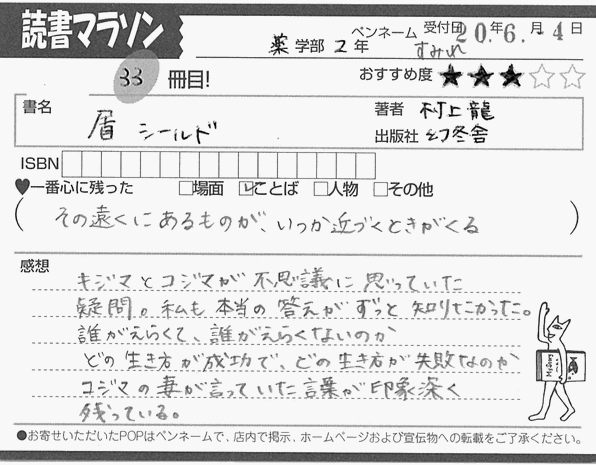 読書マラソン
受付日 20年6月4日
薬学部2年 ペンネーム すみれ
33冊目!
おすすめ度 ★★★☆☆
書名 盾 シールド
著者 村上龍
出版社 幻冬舎
ISBN
♥一番心に残った □場面 ☑ことば □人物 □その他
(その遠くにあるものが、いつか近づくときがくる)
感想
キジマとコジマが不思議に思っていた
疑問。私も本当の答えがずっと知りたかった。
誰がえらくて、誰がえらくないのか
どの生き方が成功で、どの生き方が失敗なのか
コジマの妻が言っていた言葉が印象深く
残っている。
●お寄せいただいたPOPはペンネームで、店内で掲示、ホームページおよび宣伝物への転載をご了承ください。